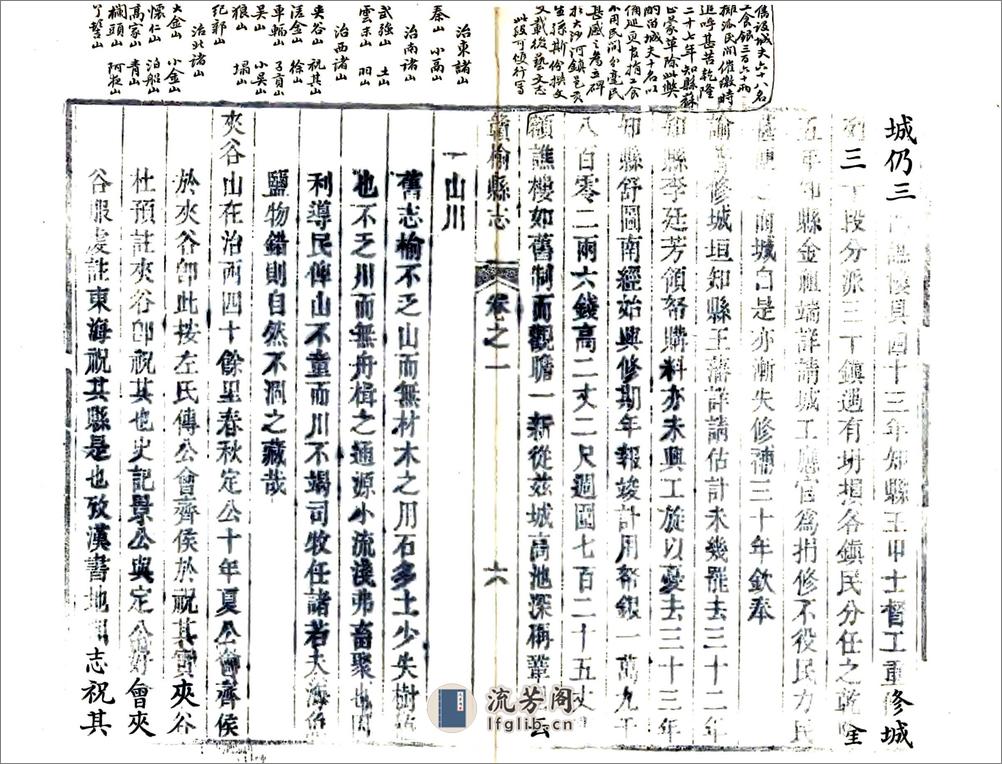 舊設城夫六十名
工食銀三百六十兩
攤派民間催繳時
追呼甚苦乾隆
二十七年知縣蘇
不用民間分毫民
甚感之為立碑
於大沙河鎮邑亥
生孫斯位撰文
又載後藝文志
此段可另行寫
治東諸山
秦山 小高山
治南諸山
武強山 土山
雲末山 羽山
治西諸山
夾谷山 祝其山
徐山
車輞山 子貢山
吳山 小吳山
狼山 塌山
紀鄣山
治北諸山
大金山 小金山
懷仁山 泊船山
高家山 青山
欄頭山 阿夜山
了髻山
城仍三 四十三年知縣王甲士督工重修城
三丁段分派三丁鎮遇有坍損各鎮民分任之乾隆
五年知縣金 端詳請城工應官為捐修不役民力民
而城自是亦漸失修補三十年欽奉
諭 修城垣知縣王 詳請估計未幾罷去三十二年
知縣李廷芳領帑購料亦未興工旋以憂去三十三年
知縣舒圖南經始興修期年報竣計用帑銀一萬九千
八百零二兩六錢高二丈二尺週圍七百二十五丈
譙樓如舊制而觀瞻一新從茲城高池深稱鞏 云
贛榆縣志 卷之一 六
山川
舊志榆不乏山而無材木之用石多土少失樹
也不乏川而無舟楫之通源小流淺弗畜聚也
利導民俾山不童而川不竭司牧任諸若夫海
鹽物錯則自然不涸之藏哉
夾谷山在治西四十餘里春秋定公十年夏公會齊侯
於夾谷卽此按左氏傳公會齊侯於祝其實夾谷
杜預註夾谷卽祝其也史記景公與定公好會夾
谷服虔註東海祝其縣是也攷漢書地理志祝其
流芳阁
lfglib.cn